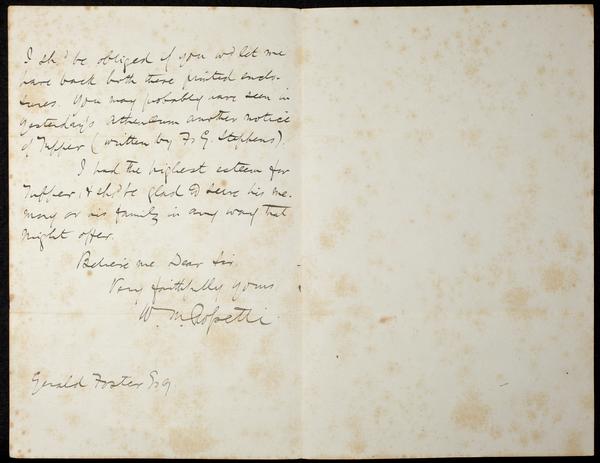 I shd be obliged if you wd let me
have back both these printed enclo-
sures. You may probably have seen in
yesterday's Athenaeum another notice
of Tupper (written by F. G. Stephens).
I had the highest esteem for
Tupper, & shd be glad to serve his me-
mory or his family in any way that
might offer.
Believe me Dear Sir
Very faithfully yours
W. M. Rossetti
Gerald Foster Esq